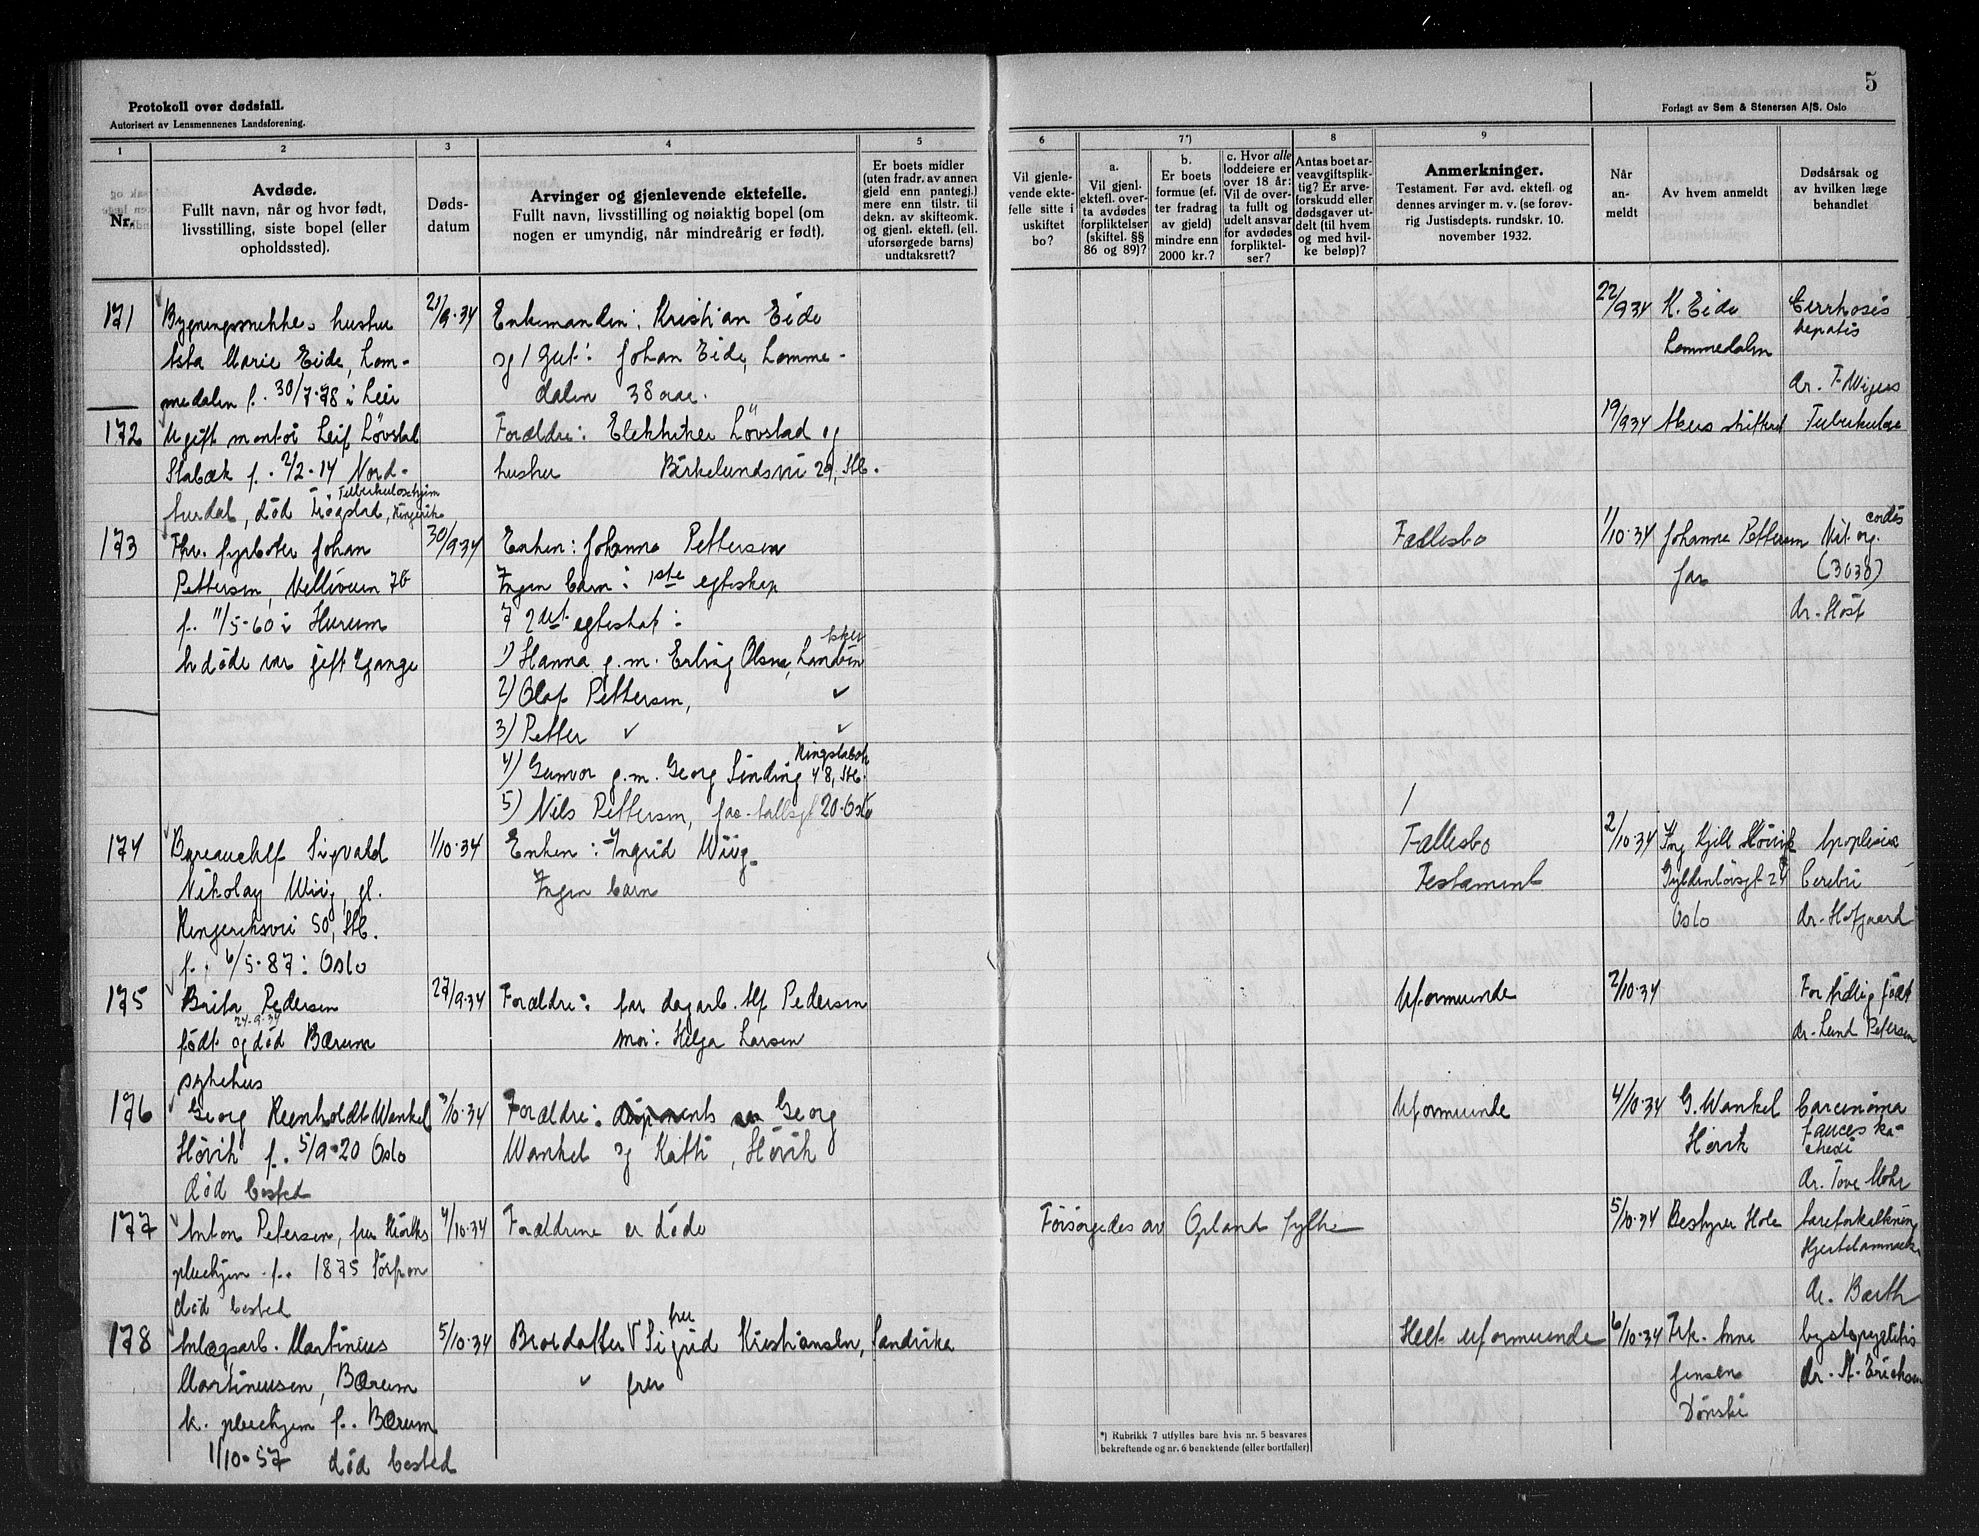 5
Protokoll over dødsfall.
Autorisert av Lensmennenes Landsforening.
Forlagt av Sem & Stenersen A/S. Oslo
1
2
3
4
5
6
7*)
8
9
Nr.
Avdøde.
Fullt navn, når og hvor født,
livsstilling, siste bopel (eller
opholdssted).
Døds-
datum
Arvinger og gjenlevende ektefelle.
Fullt navn, livsstilling og nøiaktig bopel (om
nogen er umyndig, når mindreårig er født).
Er boets midler
(uten fradr. av annen
gjeld enn pantegj.)
mere enn tilstr. til
dekn. av skifteomk.
og gjenl. ektefl. (ell.
uforsørgede barns)
undtaksrett?
Vil gjenle-
vende ekte-
felle sitte i
uskiftet
bo?
a.
Vil gjenl.
ektefl. over-
ta avdødes
forpliktelser
(skiftel. §§
86 og 89)?
b.
Er boets
formue (ef-
ter fradrag
av gjeld)
mindre enn
2000 kr.?
c. Hvor alle
loddeiere er
over 18 år:
Vil de over-
ta fullt og
udelt ansvar
for avdødes
forpliktel-
ser?
Antas boet ar-
veavgiftsplik-
tig? Er arve-
forskudd eller
dødsgaver ut-
delt (til hvem
og med hvil-
ke beløp)?
Anmerkninger.
Testament. Før avd. ektefl. og
dennes arvinger m. v. (se forøv-
rig Justisdepts. rundskr. 10.
november 1932.
Når
an-
meldt
Av hvem anmeldt
Dødsårsak og
av hvilken læge
behandlet
171
Bygningssnekke. hustru
Asta Marie Eide, Lom-
medalen f. 30/7-78 i Lier
21/9-34
Enkemanden: Kristian Eide
og 1 gut: Johan Eide, Lomme-
dalen 38 aar.
22/9 34
K. Eide
Lommedalen
Cirrhosis
hepatis
dr. F. Wiger
172
Ugift montør Leif Lövstad
Stabæk f. 2/2-14 Nord-
hurdal, död Trögstad, Tuberkulosehjem
Ringerike
Forældre: Elektriker Lövstad og
hustru Birkelundsvei 29, Stb.
19/9 34
Akers skifteret
Tuberkulose
173
Fhv. fyrböter Johan
Pettersen, Velliveien 7b
f. 11/5-60 i Hurum
Avdöde var gift 2 gange
30/9 34
Enken: Johanne Pettersen
Ingen barn i 1ste egteskap
I 2det egteskap:
1) Hanna g.m. Erling Olsen,
2) Olaf Pettersen, "
3) Petter " "
4) Gunvor g.m. Georg Sinding Ringstabek
48, Stb.
5) Nils Pettersen, 20 Oslo
Fællesbo
1/10-34
Johanne Pettersen
Vit. org. cordis
(3030)
dr. Höst
174
Bureauchef Sigvald
Nikolay Wiig, gl.
Ringeriksvei 50, Stb.
f. 6/5-87 i Oslo
1/10-34
Enken: Ingrid Wiig
Ingen barn
Fællesbo
Testament
2/10-34
Ing Kjell Hövik
Gyldenlövsgt 24
Oslo
Apoplexia
Cerebri
dr. Hofgaard
175
Brita Pedersen
24-9-34
födt og död Bærum
sykehus
27/9-34
Forældre: far dagarb. Alf Pedersen
Mor: Helga Larsen
Uformuende
2/10-34
For tidlig födt
dr. Lund Petersen
176
Georg Reinholdt Wankel
Hövik f. 5/9-20 Oslo
död bosted
3/10-34
Forældre: Georg
Wankel og Kathi, Hövik
Uformuende
4/10-34
G. Wankel
Hövik
Carcinoma
fauces ka-
chexi
dr. Tove Mohr
177
Anton Petersen, fru
pleiehjem f. 1875
död bosted
4/10-34
Forældrene er döde
Forsörgedes av Opland fylke
5/10-34
Bestyrer Hole
Aareforkalkning
Hjertelammelse
dr. Barth
178
Anlægsarb. Martinius
Martinussen, Bærum
k. pleiehjem f. Bærum
1/10-57 död bosted
5/10-34
Brordatter fru Sigrid Kristiansen, Sandvika
" fru
Helt uformuende
6/10-34
Frk. Anne
Jensen
Dönski
Cystopyelitis
dr. A. Erichsen
*) Rubrikk 7 utfylles bare hvis nr. 5 besvares
bekreftende og nr. 6 benektende (eller bortfaller)